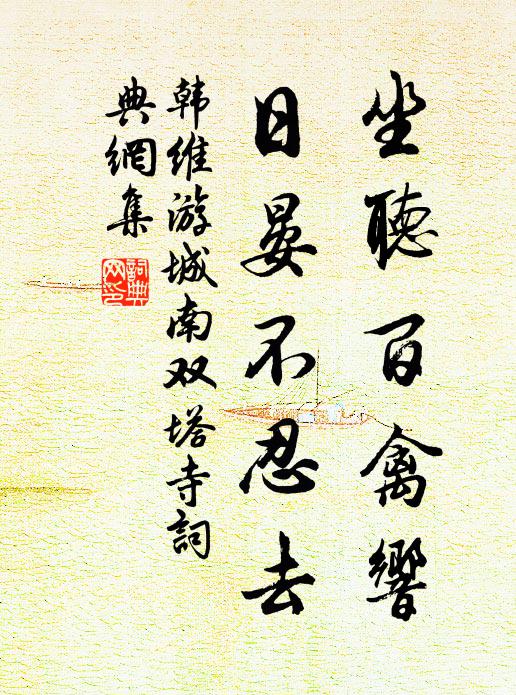 坐聽百禽響
日晏不忍去
韩維游城南双塔寺詞
典網集
詞典
网印